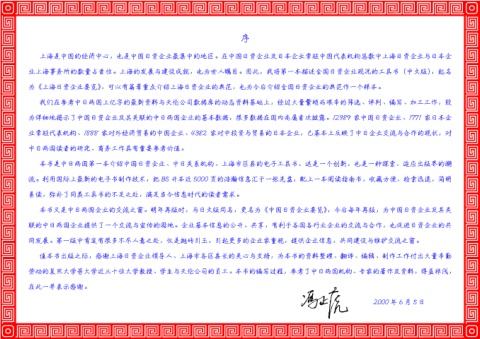 序
上海是中国的经济中心，也是中国日资企业最集中的地区。在中国日资企业及日本企业常驻中国代表机构总数中上海日资企业与日本企
业上海事务所的数量占首位。上海的发展与建设成就，也为世人瞩目。因此，我将第一本描述全国日资企业现况的工具书（中文版），起名
为《上海日资企业要览》，可以有篇章重点介绍上海日资企业的典范，也为今后介绍全国日资企业的典范作个样本。
我们在参考中日两国上亿字的最新资料与天伦公司数据库的动态资料基础上，经过大量繁琐而艰辛的筛选、译判、编写、加工工作，较
为详细地揭示了中国日资企业及其关联的中日两国企业的基本数据，很多数据在国内尚属首次披露。12989家中国日资企业、1771家日本企
业常驻代表机构、1888家对外经济贸易的中国企业、4382家对中投资与贸易的日本企业，已基本上反映了中日企业交流与合作的现状，对
中日两国读者的研究、商务工作具有重要参考价值。
本书是中日两国第一本介绍中国日资企业、中日关系机构、上海市区县的电子工具书。这是一个创新，也是一种探索，适应出版界的潮
流。利用国际上最新的电子书制作技术，把B5开本近5000页的浩瀚信息汇于一张光盘，配上一本阅读指南书，收藏方便，检索迅速，简明
易读，弥补了同类工具书的不足之处，满足当今信息时代的读者需求。
本书又是中日两国企业的交流之窗。明年再版时，与日文版同名，更名为《中国日资企业要览》，今后每年再版，为中国日资企业及其关
联的中日两国企业提供了一个交流与宣传的园地。企业基本信息的公开、共享，有利于各国各行企业的交流与合作，也促进日资企业的共
同发展。第一版中肯定有很多不尽人意之处，仅是抛砖引玉，引起更多的企业家重视，提供企业信息，共同建设与维护交流之窗。
值本书出版之际，感谢上海日资企业领导人、上海市各区县长的关心与支持，为本书的资料整理、翻译、编辑、制作工作付出大量辛勤
劳动的复旦大学等大学近三十位大学教授、学生与天伦公司的员工。本书的编写过程，参考了中日两国机构、专家的著作及资料，得益祥浅，
在此一并表示感谢。
冯正虎
2000年6月5日